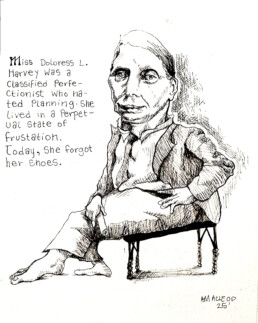 Miss Doloress L.
Harvey was a
Classified Perfe-
ctionist who ha-
ted Planning. She
lived in a Perpet-
ual state of
frustation.
Today, She forgot
her Shoes.
25'